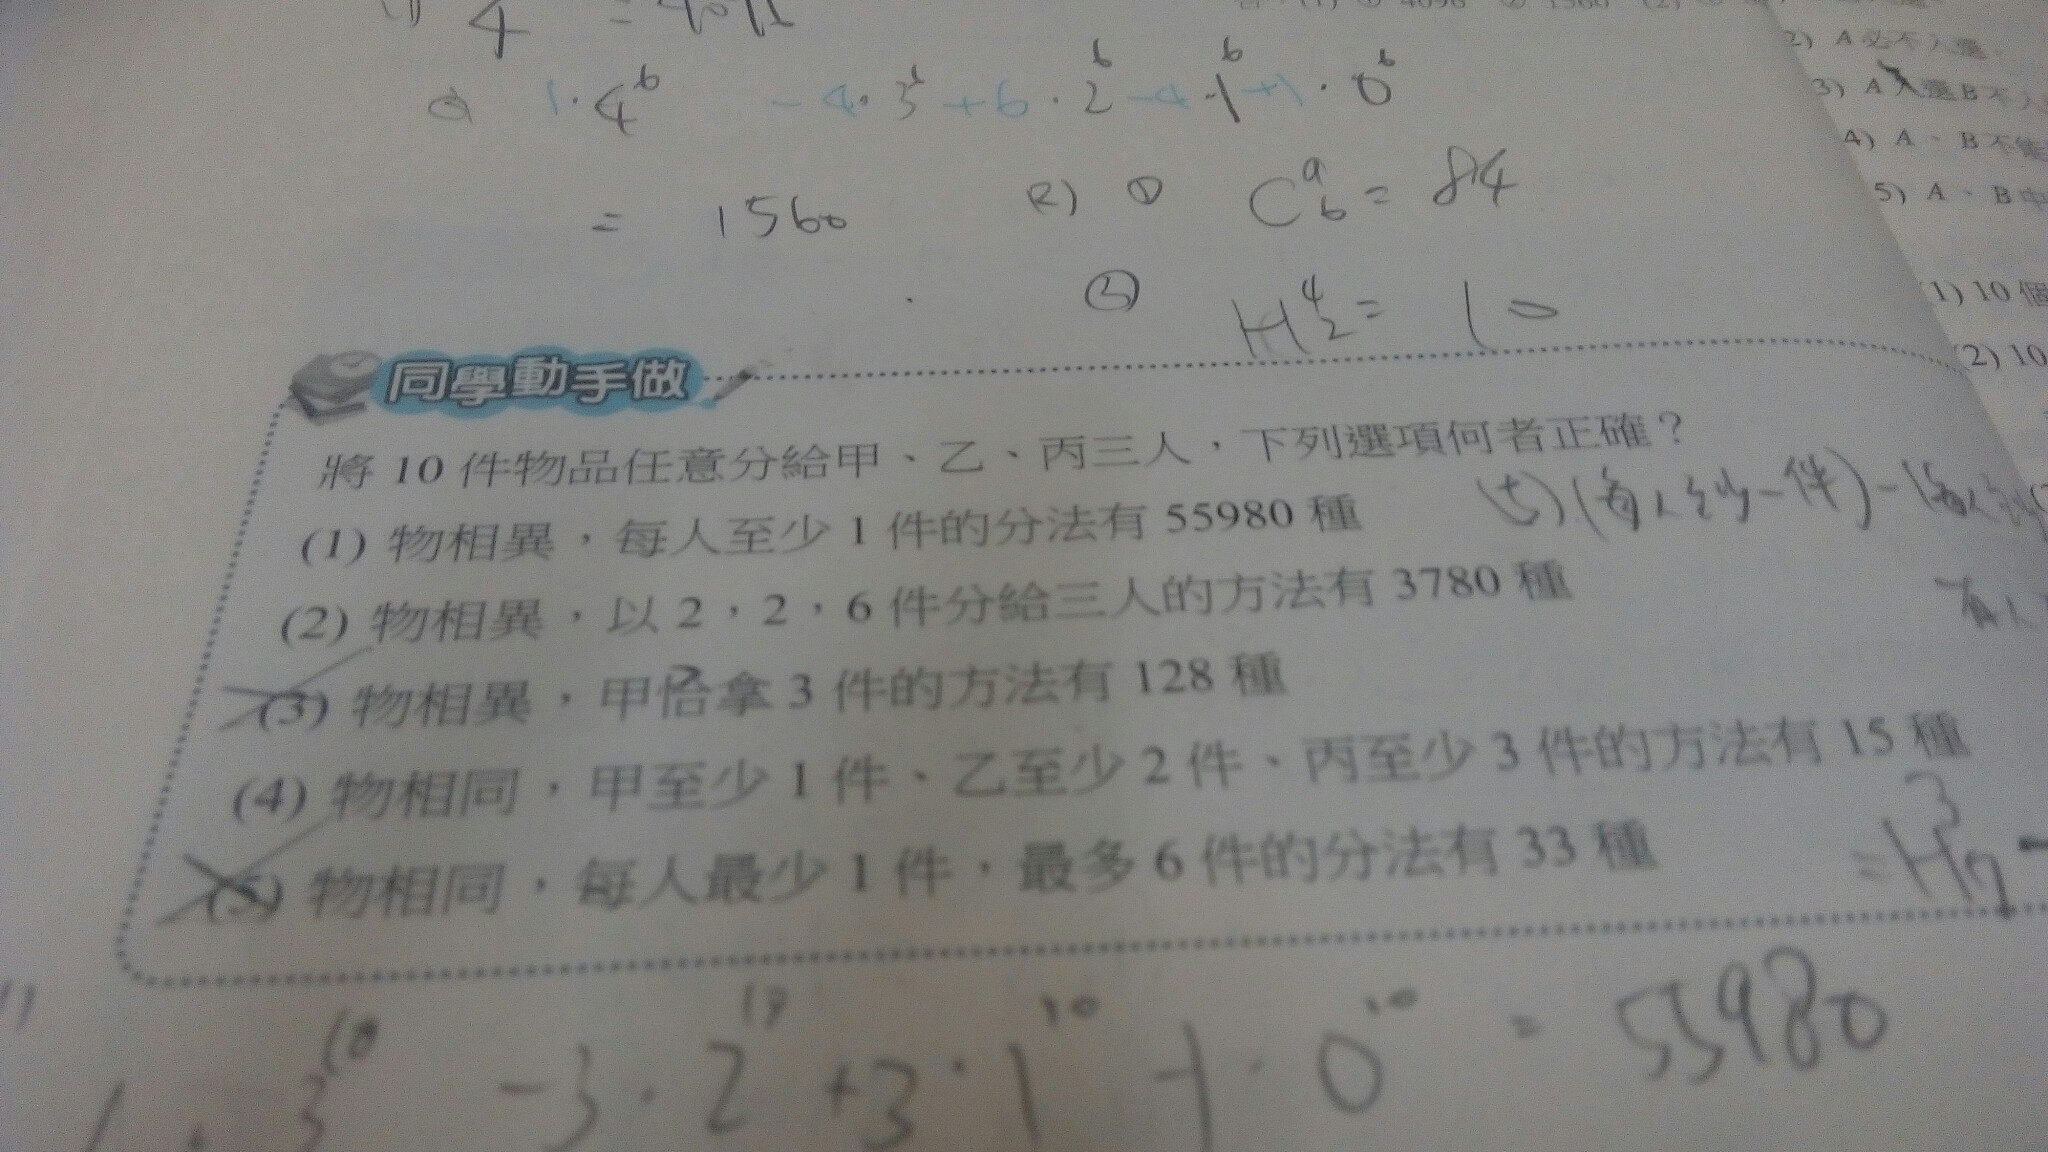 4
② 1·4⁶ -4·3⁶ +6·2⁶ -4·1⁶ +1·0⁶
= 1560
(2) ① C⁹₆ = 84
② H⁴₂ = 10
2) A 必不入選。
3) A入選B不入
4) A、B不能
5) A、B中
(1) 10 個
(2) 10
同學動手做
將 10 件物品任意分給甲、乙、丙三人，下列選項何者正確？
(1) 物相異，每人至少 1 件的分法有 55980 種
(5) (每人至少一件) - (每人至少
(2) 物相異，以 2，2，6 件分給三人的方法有 3780 種
(3) 物相異，甲恰拿 3 件的方法有 128 種
(4) 物相同，甲至少 1 件、乙至少 2 件、丙至少 3 件的方法有 15 種
(5) 物相同，每人最少 1 件，最多 6 件的分法有 33 種
= H³₇ -
1)
1·3¹⁰ -3·2¹⁰ +3·1¹⁰ -1·0¹⁰ = 55980